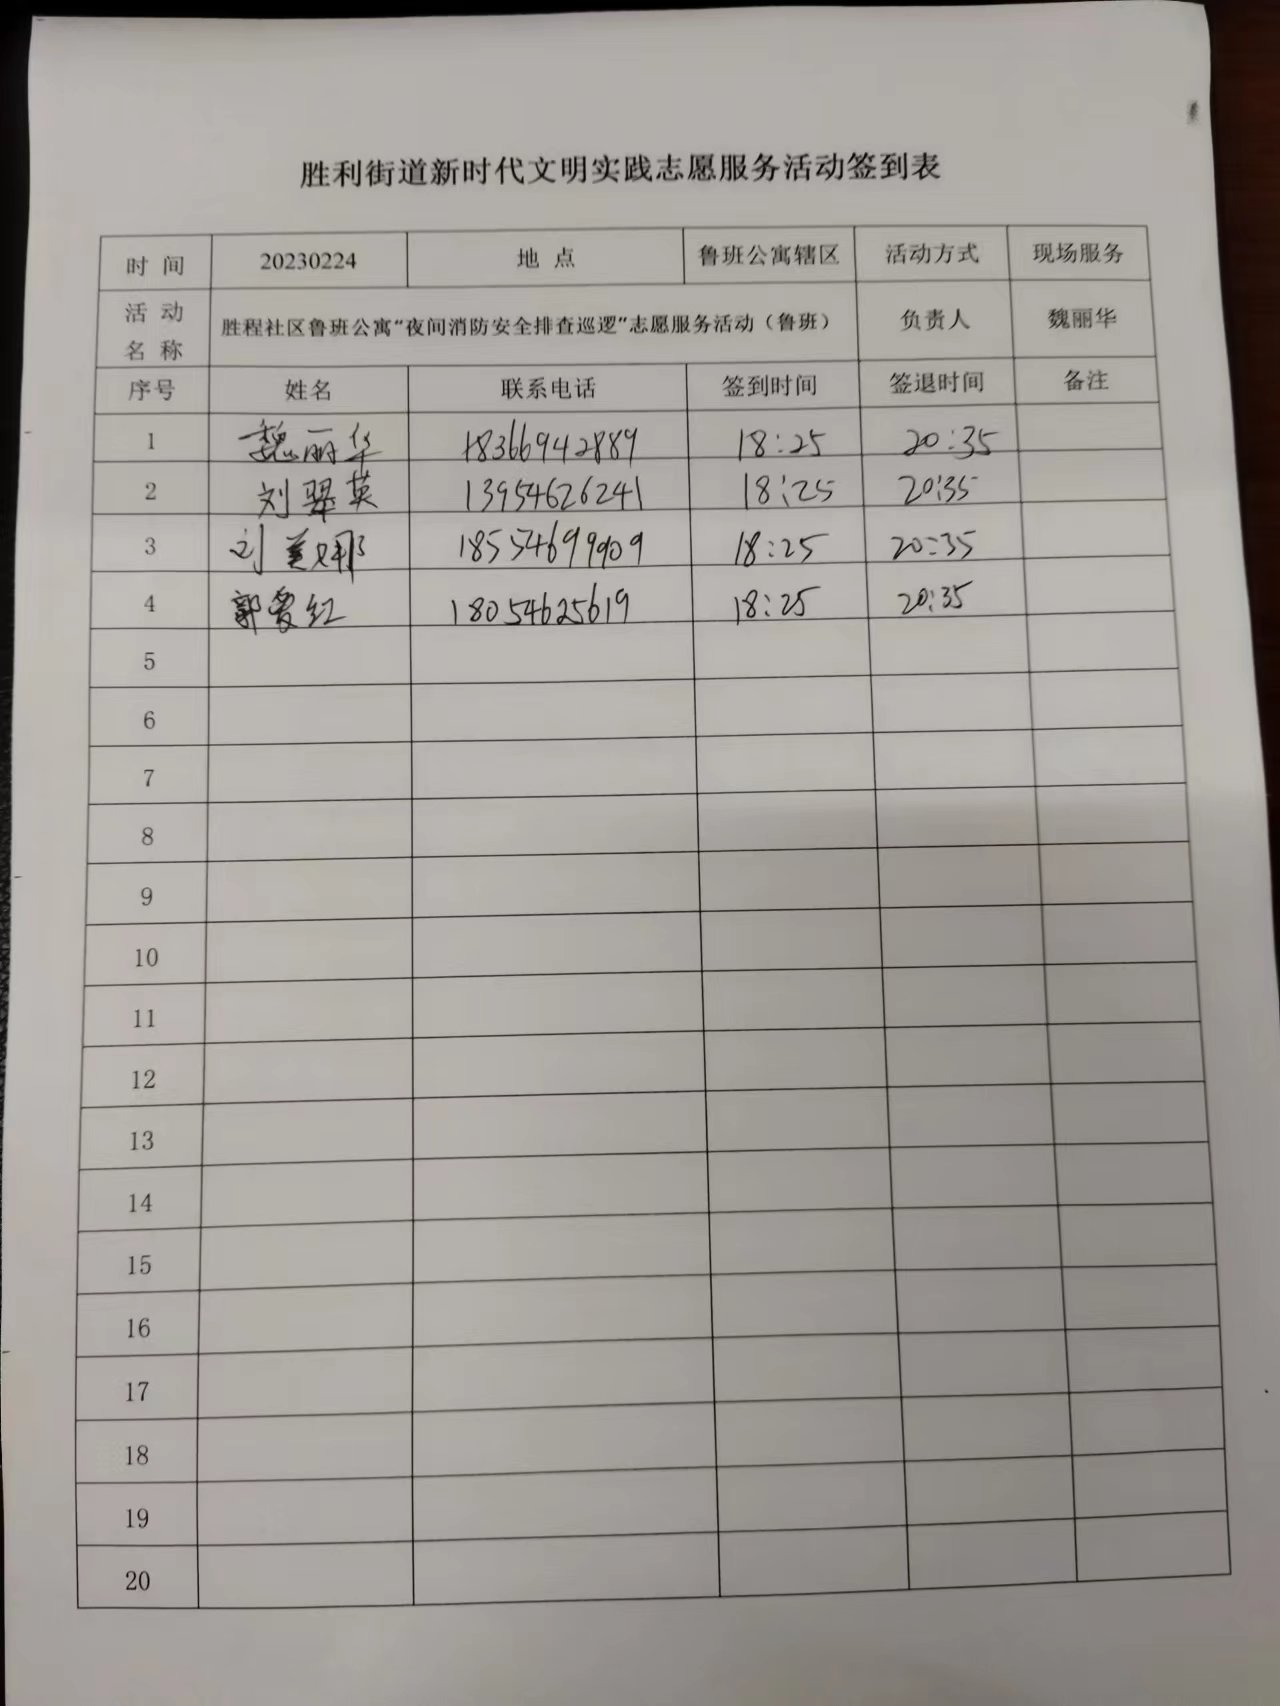 胜利街道新时代文明实践志愿服务活动签到表
时间 20230224 地点 鲁班公寓辖区 活动方式 现场服务
活动名称 胜程社区鲁班公寓“夜间消防安全排查巡逻”志愿服务活动（鲁班） 负责人 魏丽华
序号 姓名 联系电话 签到时间 签退时间 备注
1 魏丽华 18366942889 18:25 20:35
2 刘翠英 13954626241 18:25 20:35
3 刘美娜 18554699909 18:25 20:35
4 郭爱红 18054625619 18:25 20:35
5
6
7
8
9
10
11
12
13
14
15
16
17
18
19
20